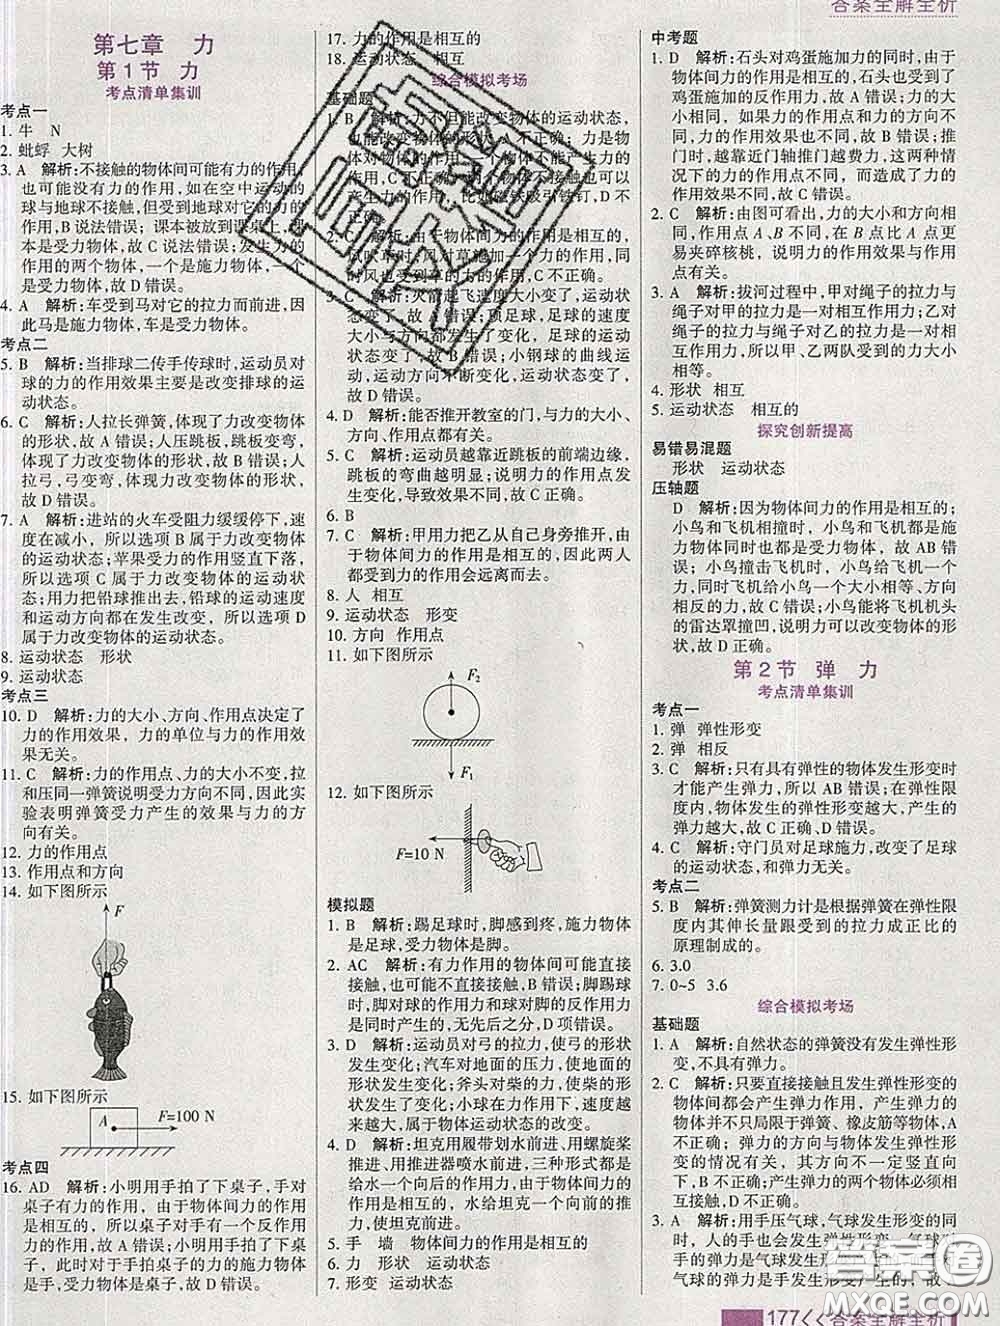 答案全解全析
第七章 力
第1节 力
考点清单集训
考点一
1. 牛 N
2. 蚍蜉 大树
3. A 解析:不接触的物体间可能有力的作用,
也可能没有力的作用,如在空中运动的
球与地球不接触,但受到地球对它的力的
作用,B说法错误;课本被放到课桌上,
本是受力物体,故C说法错误;发生力的
作用的两个物体,一个是施力物体,一个
是受力物体,故D错误。
4. A 解析:车受到马对它的拉力而前进,因
此马是施力物体,车是受力物体。
考点二
5. B 解析:当排球二传手传球时,运动员对
球的力的作用效果主要是改变排球的运
动状态。
6. C 解析:人拉长弹簧,体现了力改变物体
的形状,故A错误;人压跳板,跳板变弯,
体现了力改变物体的形状,故B错误;
人拉弓,弓变弯,体现了力改变物体的形状,
故D错误。
7. A 解析:进站的火车受阻力缓缓停下,速
度在减小,所以选项B属于力改变物体
的运动状态;苹果受力的作用竖直下落,
所以选项C属于力改变物体的运动状
态;用力把铅球推出去,铅球的运动速度
和运动方向都在发生改变,所以选项D
属于力改变物体的运动状态。
8. 运动状态 形状
9. 运动状态
考点三
10. D 解析:力的大小、方向、作用点决定了
力的作用效果,力的单位与力的作用效
果无关。
11. C 解析:力的作用点、力的大小不变,拉
和压同一弹簧说明受力方向不同,因此实
验表明弹簧受力产生的效果与力的方
向有关。
12. 力的作用点
13. 作用点和方向
14. 如下图所示
F
15. 如下图所示
A F=100 N
考点四
16. AD 解析:小明用手拍了下桌子,手对
桌子有力的作用,由于物体间力的作用
是相互的,所以桌子对手有一个反作用
力的作用,故A错误;小明用手拍了下桌
子,此时对于手拍桌子的力的施力物体
是手,受力物体是桌子,故D错误。
17. 力的作用是相互的
18. 运动状态 相互
综合模拟考场
基础题
1. B 解析:力不但能改变物体的运动状态,
也能改变物体的形状,不正确;力是物
体对物体的作用,不能产生力的
作用,C不正确;比如磁铁吸引铁钉,D
正确。
2. C 解析:由于物体间力的作用是相互的,
风吹草时,风对草施加一个力的作用,同
时风也受到草的力的作用,C不正确。
3. C 解析:火箭起飞速度大小变了,运动状态
变了,故A错误;顶足球,足球的速度
大小与方向都发生了变化,足球的运动
状态变了,故B错误;小钢球的曲线运
动,运动方向不断变化,运动状态变了,
故D错误。
4. D 解析:能否推开教室的门,与力的大小、
方向、作用点都有关。
5. C 解析:运动员越靠近跳板的前端边缘,
跳板的弯曲越明显;说明力的作用点发
生变化,导致效果不同。
6. B
7. C 解析:甲用力把乙从自己身旁推开,由
于物体间力的作用是相互的,因此两人
都受到力的作用会远离而去。
8. 人 相互
9. 运动状态 形变
10. 方向 作用点
11. 如下图所示
F₂
F₁
12. 如下图所示
F=10 N
模拟题
1. B 解析:踢足球时,脚感到疼,施力物体
是足球,受力物体是脚。
2. AC 解析:有力作用的物体间可能直接
接触,也可能不直接接触;脚踢球时,
脚对球的作用力和球对脚的反作用力
是同时产生的,无先后之分,D项错误。
3. D 解析:运动员对弓的拉力,使弓的形状
发生变化;汽车对地面的压力,使地面的
形状发生变化;斧头对柴的力,使柴的形
状发生了变化;小球在力作用下,速度越
来越大,属于力使物体运动状态的改变。
4. D 解析:坦克用履带划水前进、用螺旋桨
推进、用推进器喷水前进,三种形式都是
给水一个向后的作用力,由于物体间力
的作用是相互的,水给坦克一个向前的推
力,使坦克前进。
5. 手 墙 物体间力的作用是相互的
6. 力 形状 运动状态
7. 形变 运动状态
中考题
1. D 解析:石头对鸡蛋施加力的同时,由于
物体间力的作用是相互的,石头也受到了
鸡蛋施加的反作用力,故A错误;力的大小
相同,如果力的作用点和力的方向不
同,力的作用效果也不同,故B错误;推
门时,越靠近门轴推门越费力,这种
情况下的力的作用点不同,而造成了力的
作用效果不同,故C错误。
2. C 解析:由图可看出,力的大小和方向相
同,作用点A、B不同,在B点比A点更
易夹碎核桃,说明力的作用效果与作用
点有关。
3. A 解析:拔河过程中,甲对绳子的拉力与
绳子对甲的拉力是一对相互作用力;乙对
绳子的拉力与绳子对乙的拉力是一对相
互作用力,所以甲、乙两队受到的拉力大小
相等。
4. 形状 相互
5. 运动状态 相互的
探究创新提高
易错易混题
形状 运动状态
压轴题
D 解析:因为物体间力的作用是相互的;
小鸟和飞机相撞时,小鸟和飞机都是施
力物体同时也都是受力物体,故AB错
误;小鸟撞击飞机时,小鸟给飞机一个
力,同时飞机给小鸟一个大小相等、方向
相反的力,故C正确;小鸟能将飞机机头
的雷达罩撞凹,说明力可以改变物体的形
状,故D正确。
第2节 弹 力
考点清单集训
考点一
1. 弹 弹性形变
2. 弹 相反
3. C 解析:只有具有弹性的物体发生形变时
才能产生弹力,所以AB错误;在弹性限
度内,物体发生的弹性形变越大,产生的
弹力越大,故C正确、D错误。
4. C 解析:守门员对足球施力,改变了足球
的运动状态,和弹力无关。
考点二
5. B 解析:弹簧测力计是根据弹簧在弹性限
度内其伸长量跟受到的拉力成正比的
原理制成的。
6. 3.0
7. 0~5 3.6
综合模拟考场
基础题
1. A 解析:自然状态的弹簧没有发生弹性形
变,不具有弹力。
2. C 解析:只要直接接触且发生弹性形变的
物体间都会产生弹力作用,产生弹力的物体
并不只局限于弹簧、橡皮筋等物体,A
不正确;弹力的方向与物体发生弹性形
变有关,其方向不一定总是竖直向下,
B不正确;产生弹力的两个物体必须相互
接触,D不正确。
3. A 解析:用手压气球,气球发生形变的同
时,人的手也会发生形变
手的弹力是气球发生形变
气球的弹力是手发生形变产生的,故
177 答案全解全析
答案圈
MXQE.COM